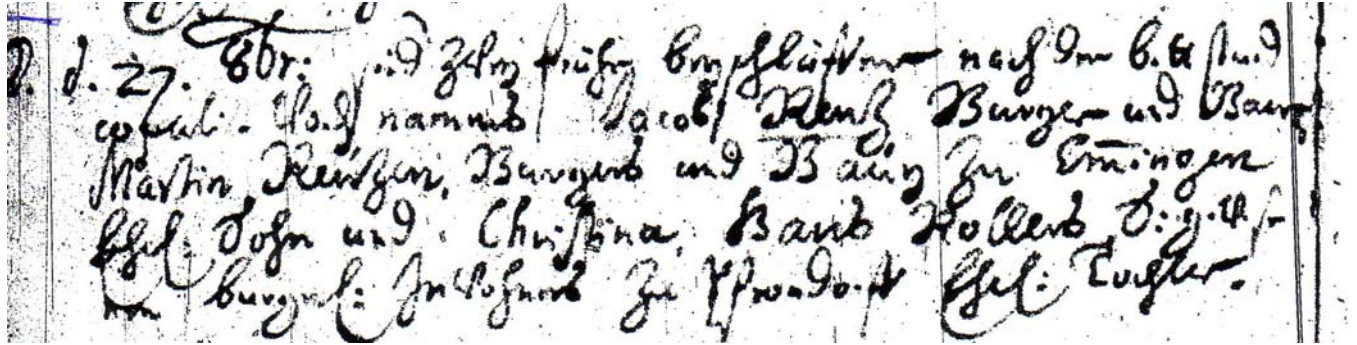 D. d. 27. 8br: sind zwey frühe beyschläffer nach der bettstund
copuli. word nammens Jacob Rentz Burger und Baur,
Martin Rentzen, Burgers und Baurs zu Emingen
Ehel: Sohn und Christina, Hans Kollers,
burgerl: Inwohners zu Pfrondorff Ehel: Tochter.